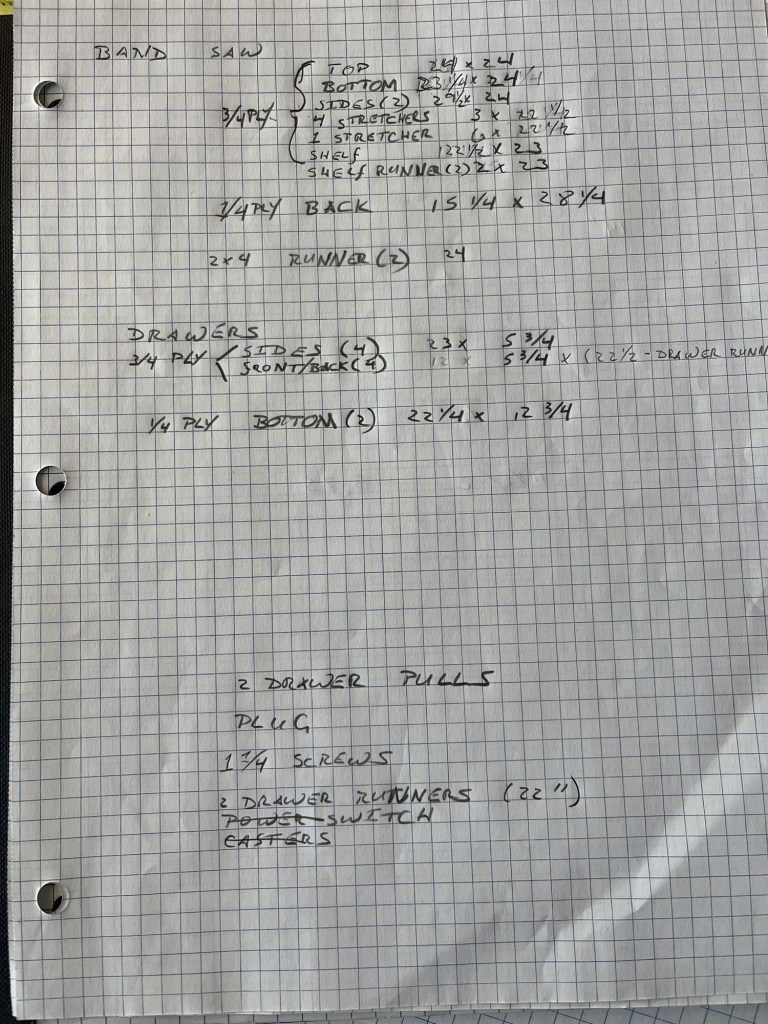 BAND SAW
TOP 24 x 24
BOTTOM 23 1/4 x 24
SIDES (2) 29 1/2 x 24
3/4 PLY 4 STRETCHERS 3 x 22 1/2
1 STRETCHER 6 x 22 1/2
SHELF 22 1/2 x 23
SHELF RUNNER (2) 2 x 23
PLY BACK 15 1/4 x 28 1/4
2x4 RUNNER (2) 24
DRAWERS
3/4 PLY SIDES (4) 23 x 5 3/4
FRONT/BACK (4) 12 x 5 3/4 x (22 1/2 - DRAWER RUNN
1/4 PLY BOTTOM (2) 22 1/4 x 12 3/4
2 DRAWER PULLS
PLUG
SCREWS
2 DRAWER RUNNERS (22")
POWER SWITCH
CASTERS